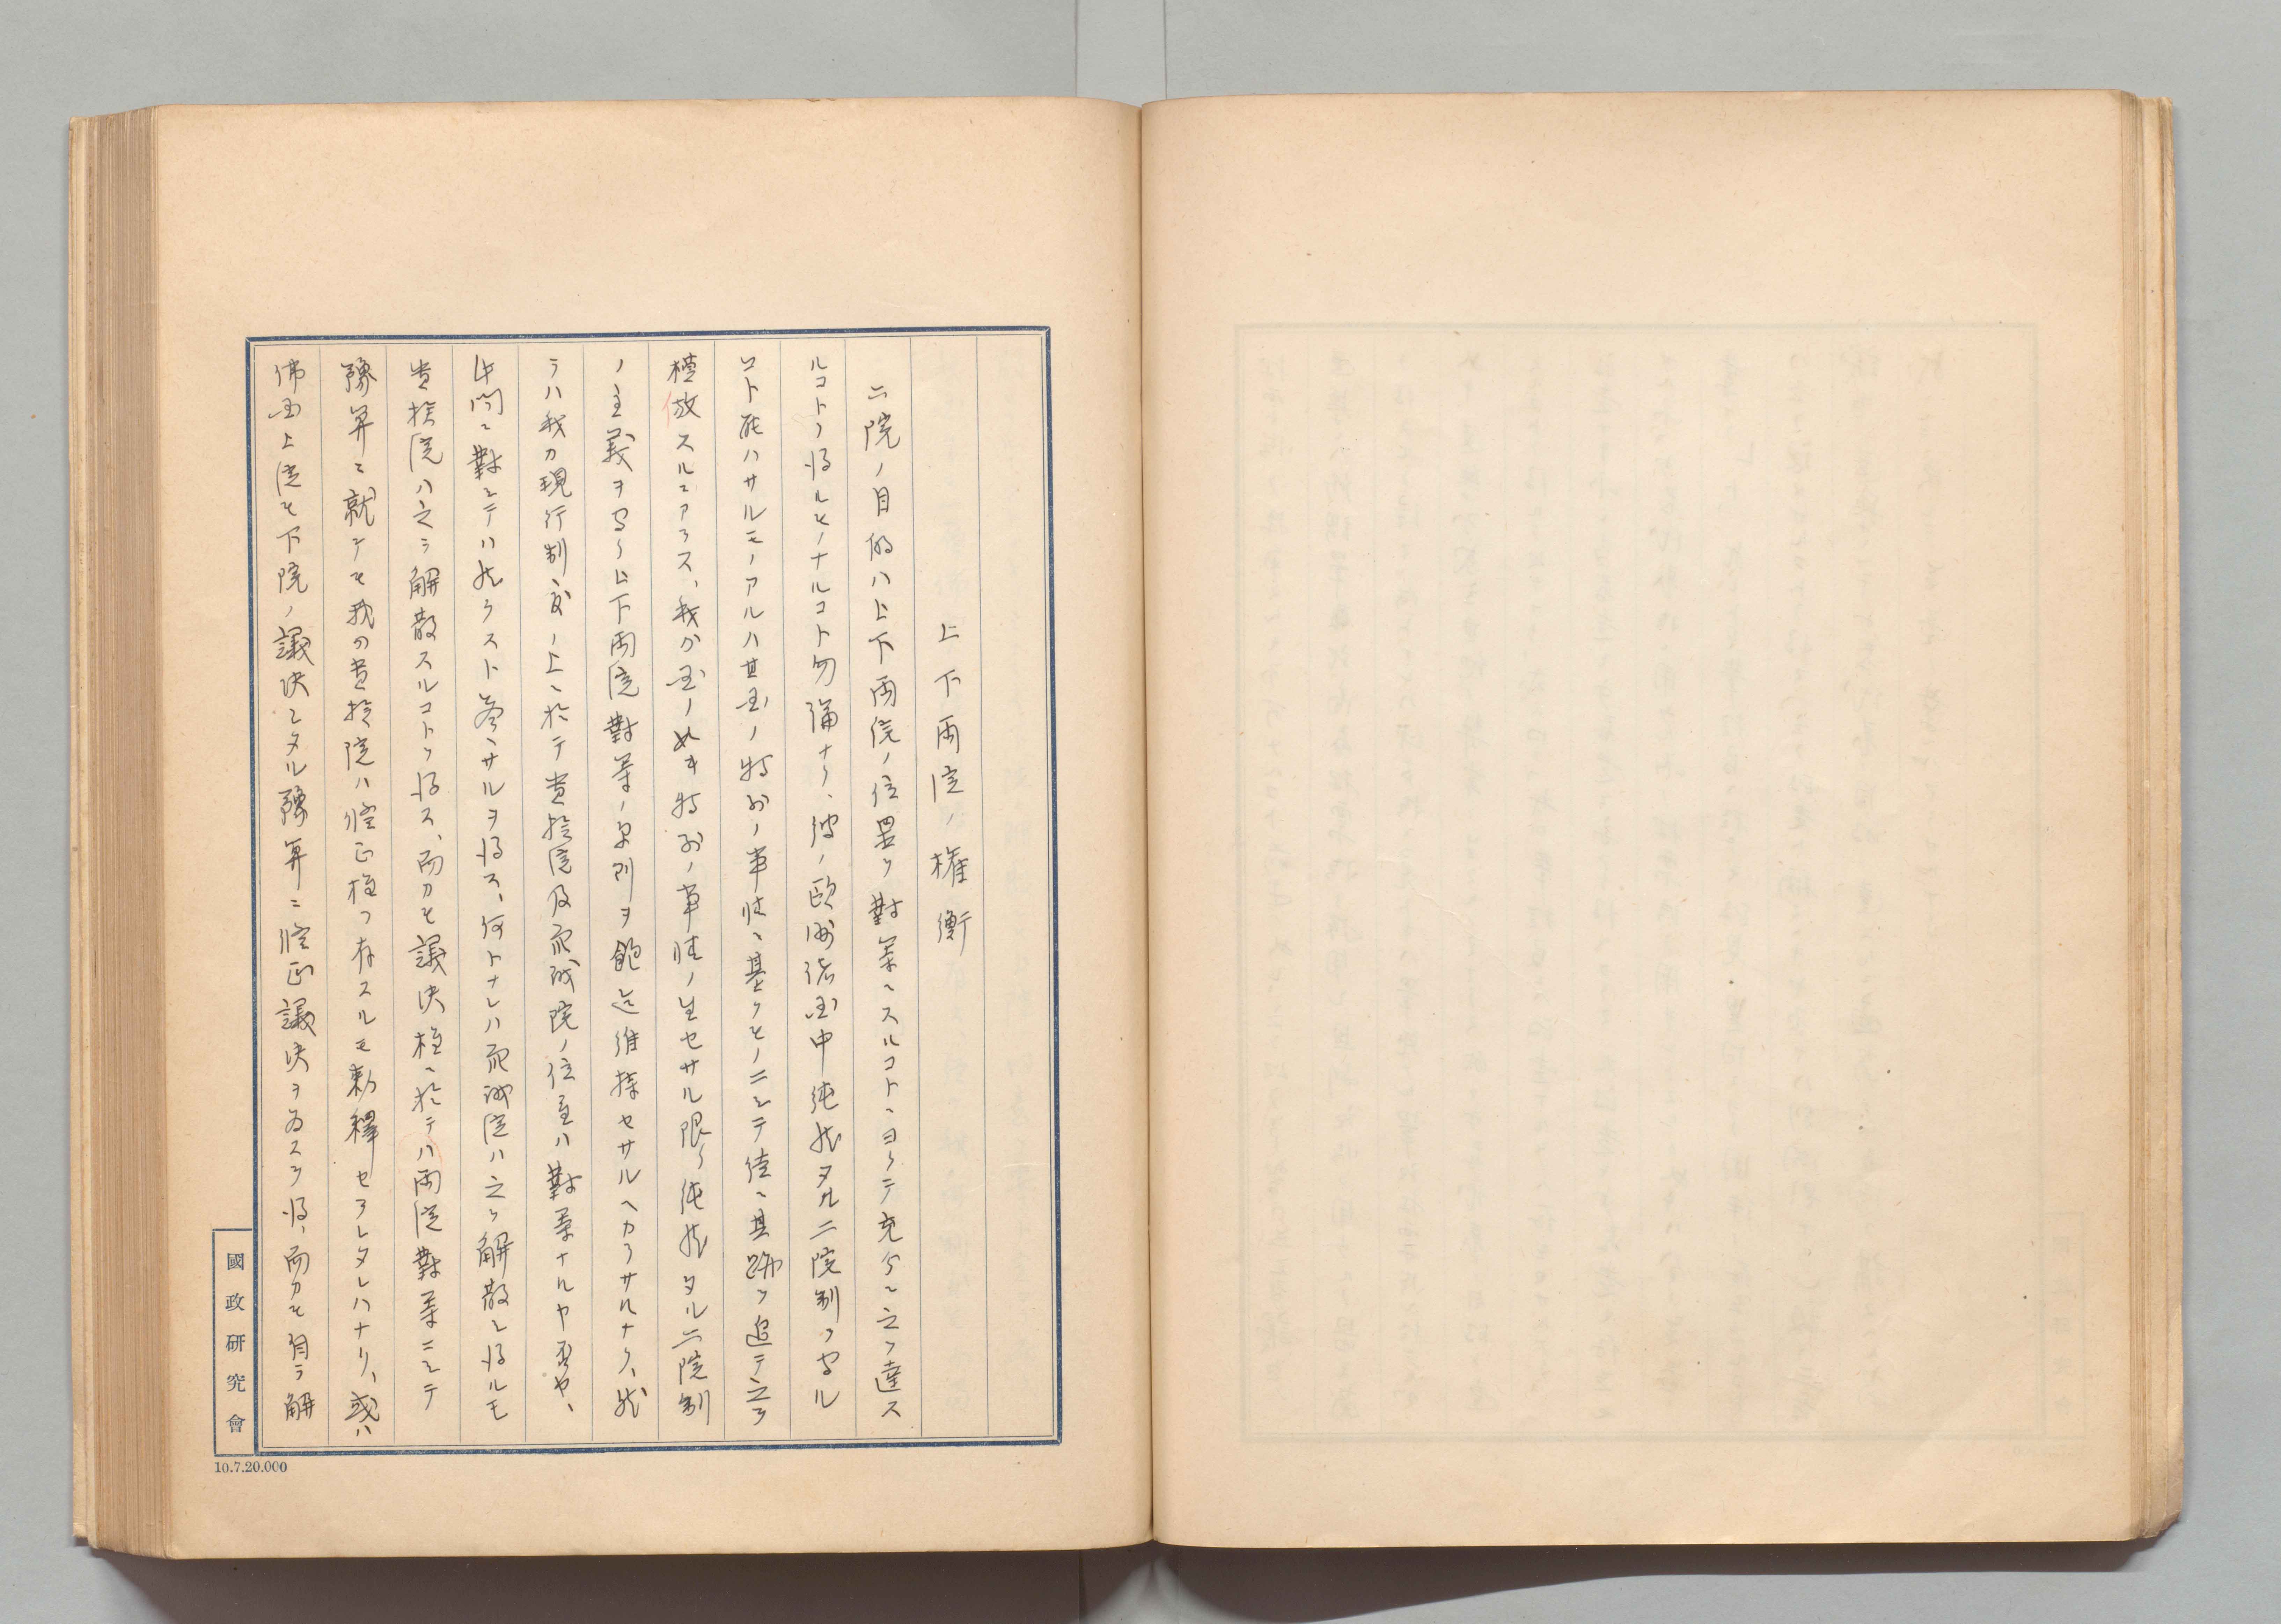 上下両院ノ権衡
二院ノ目的ハ上下両院ノ位置ヲ対等ニスルコトニヨリテ充分ニ之ヲ達ス
ルコトヲ得ルモノナルコト勿論ナリ、彼ノ欧洲諸国中純然タル二院制ヲ守ル
コト能ハサルモノアルハ其国ノ特別ノ事情ニ基クモノニシテ徒ニ其跡ヲ追テ之ヲ
模倣スルニアラス、我カ国ノ如キ特別ノ事情ノ生セサル限リ純然タル二院制
ノ主義ヲ守リ上下両院対等ノ原則ヲ飽迄維持セサルヘカラサルナリ、然
ラハ我カ現行制度ノ上ニ於テ貴族院及衆議院ノ位置ハ対等ナルヤ否ヤ、
此問ニ對シテハ然ラスト答ヘサルヲ得ス、何トナレハ衆議院ハ之ヲ解散シ得ルモ
貴族院ハ之ヲ解散スルコトヲ得ス、而カモ議決権ニ於テハ両院対等ニシテ
豫算ニ就テモ我カ貴族院ハ修正権ヲ有スルモ勅釋セラレタレハナリ、或ハ
佛国上院モ下院ノ議決シタル豫算ニ修正議決ヲ為スヲ得、而カモ自ラ解
國政研究會
10.7.20.000